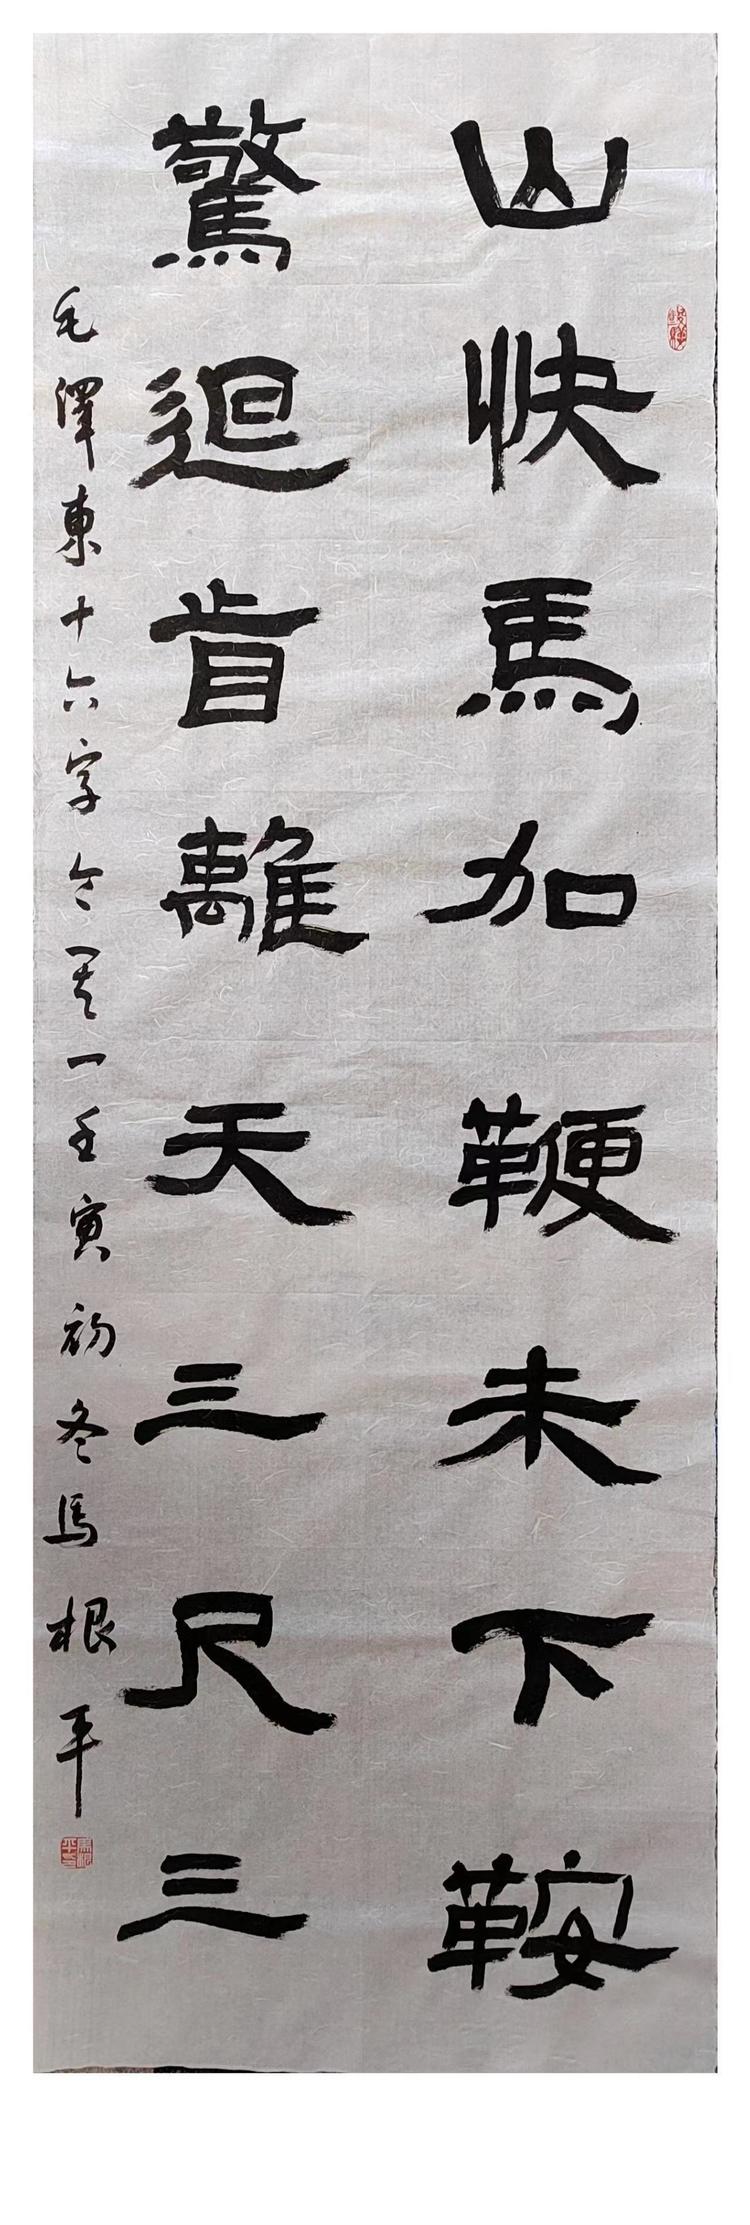 山快馬加鞭未下鞍
驚迴首離天三尺三
毛澤東十六字令其一壬寅初冬馬根平